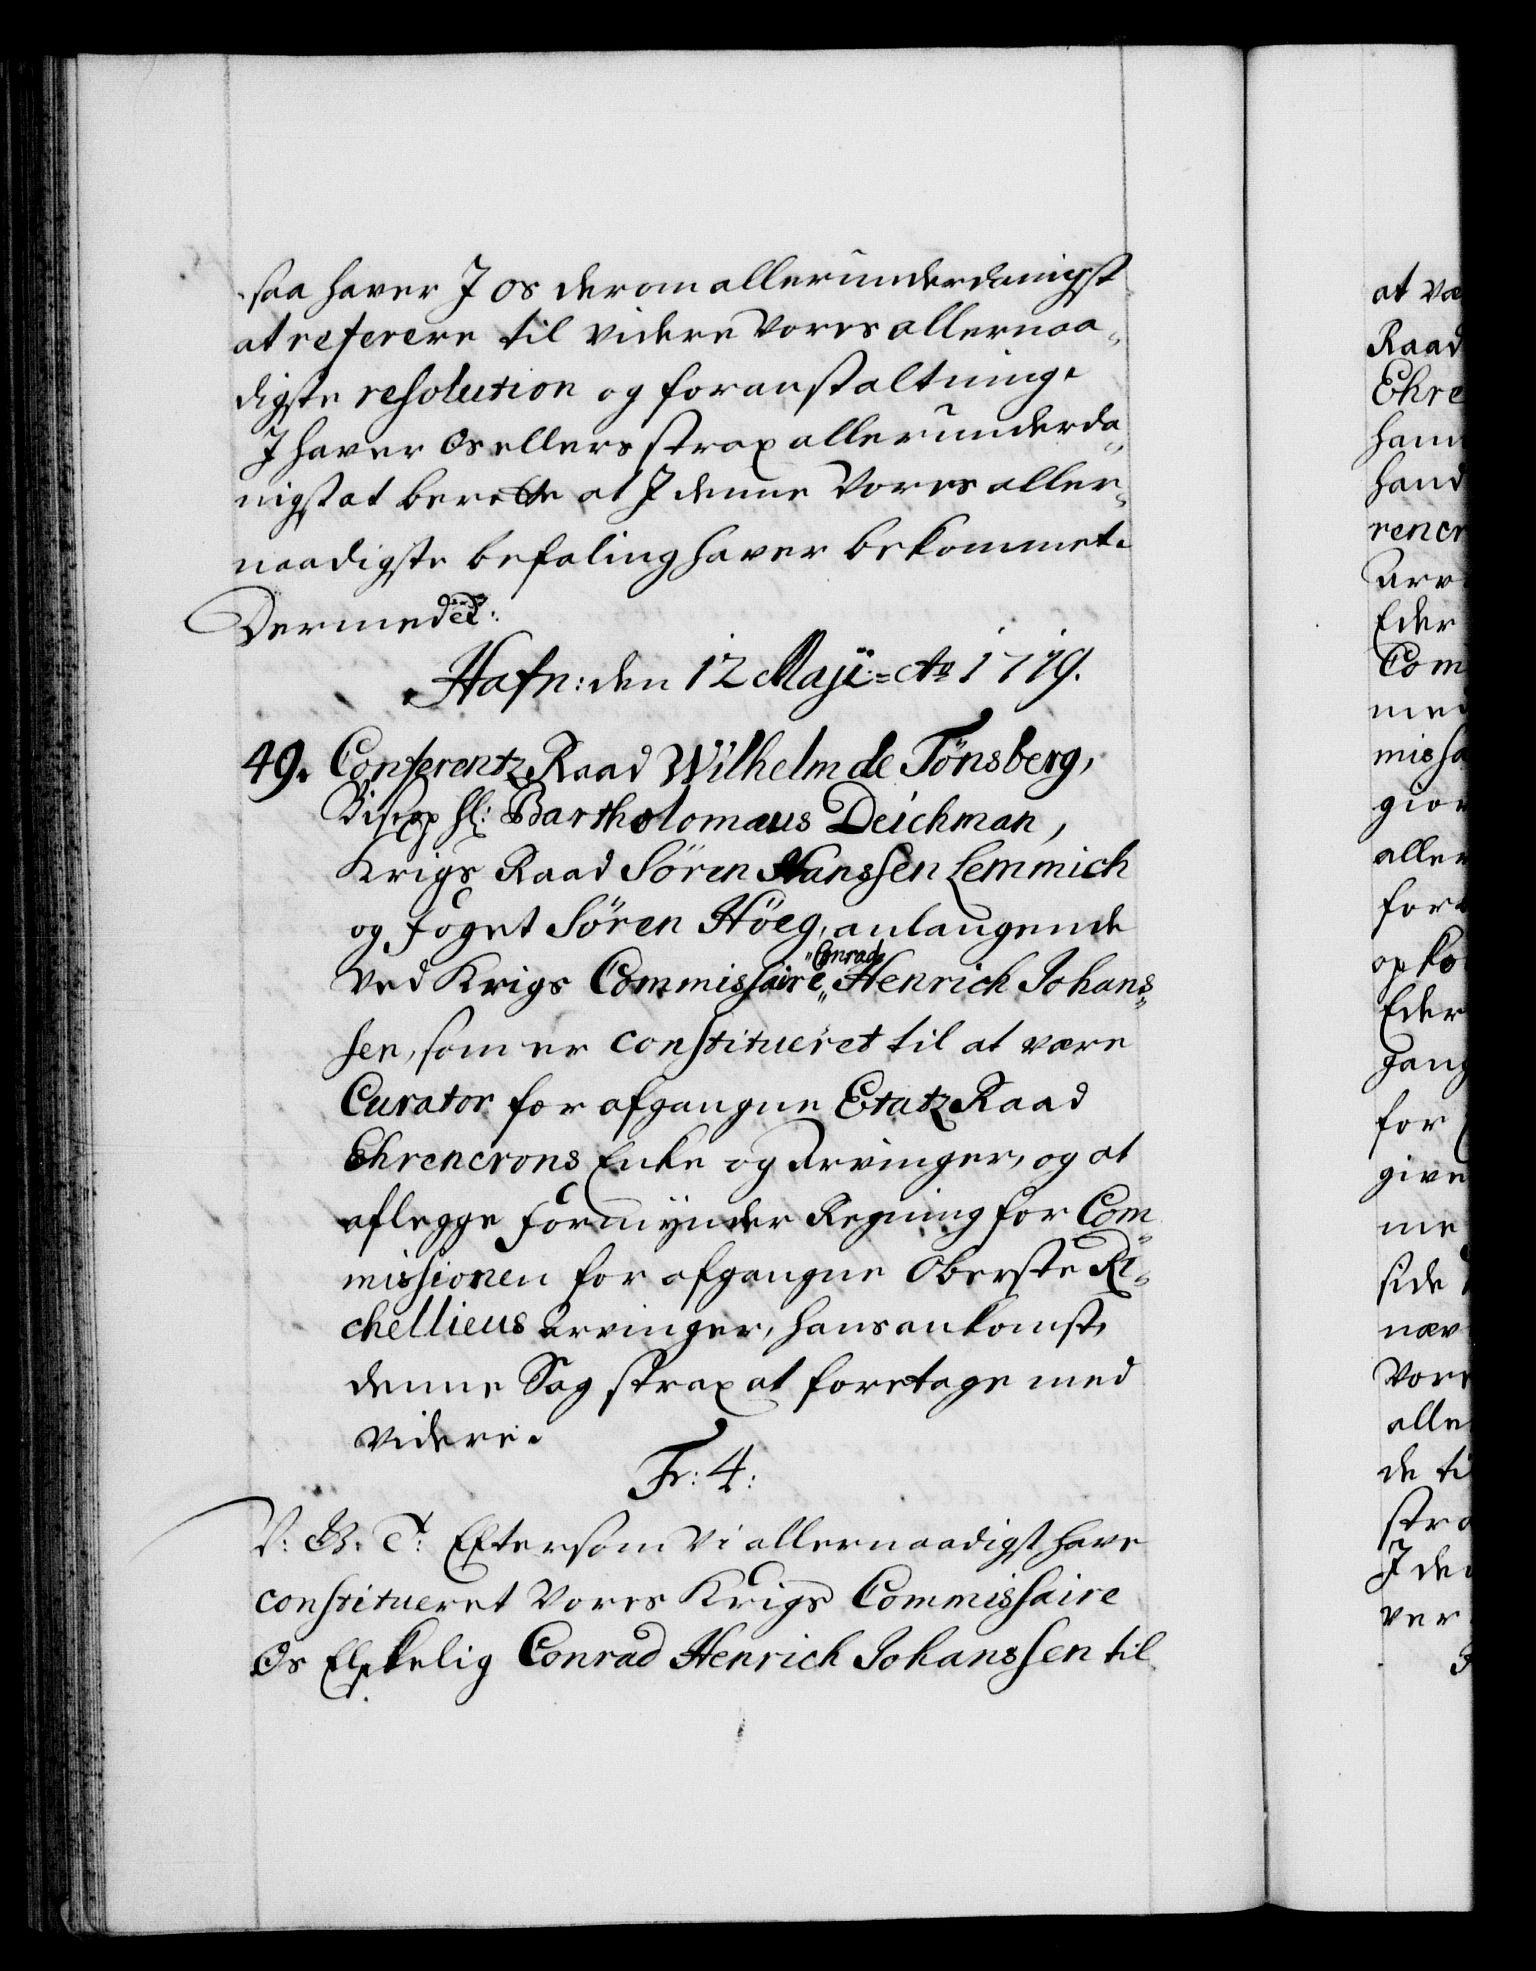 saa haver I os derom allerunderdanigst
at referere til videre Vores allernaa„
digste resolution og foranstaltning.
I haver Os ellers strax allerunderda„
nigst at berette at I denne Vores aller„
naadigste befaling haver bekommet.
Dermed etc:
Hafn: den 12 Maji Ao 1719.
49. Conferentz Raad Wilhelm de Tönsberg,
Biskop Hl: Bartholomæus Deichman,
Krigs Raad Sören Hanssen Lemmich
og Foget Sören Höeg, anlangende
Ved Krigs Commissaire „Conrad„ Henrich Johans„
sen, som er constitueret til at være
Curator for afgangne Etatz Raad
Ehrencrons Enke og Arvinger, og at
aflegge Formynder Regning for Com„
missionen for afgangne Oberste Ri„
chellieus Arvinger, hans ankomst,
denne Sag strax at foretage med
videre.
Fr: 4:
V: G. T: Eftersom Vi allernaadigst have
constitueret Vores Krigs Commissaire
Os Elskelig Conrad Henrich Johanssen til
at væ
Raad
Ehre
ham
hand
rencr
Arv
Eder
Com
med
missa
gior
aller
for
op ko
Eder
gang
for
give
me
side
næv
Vore
alle
de ti
stra
I de
ver